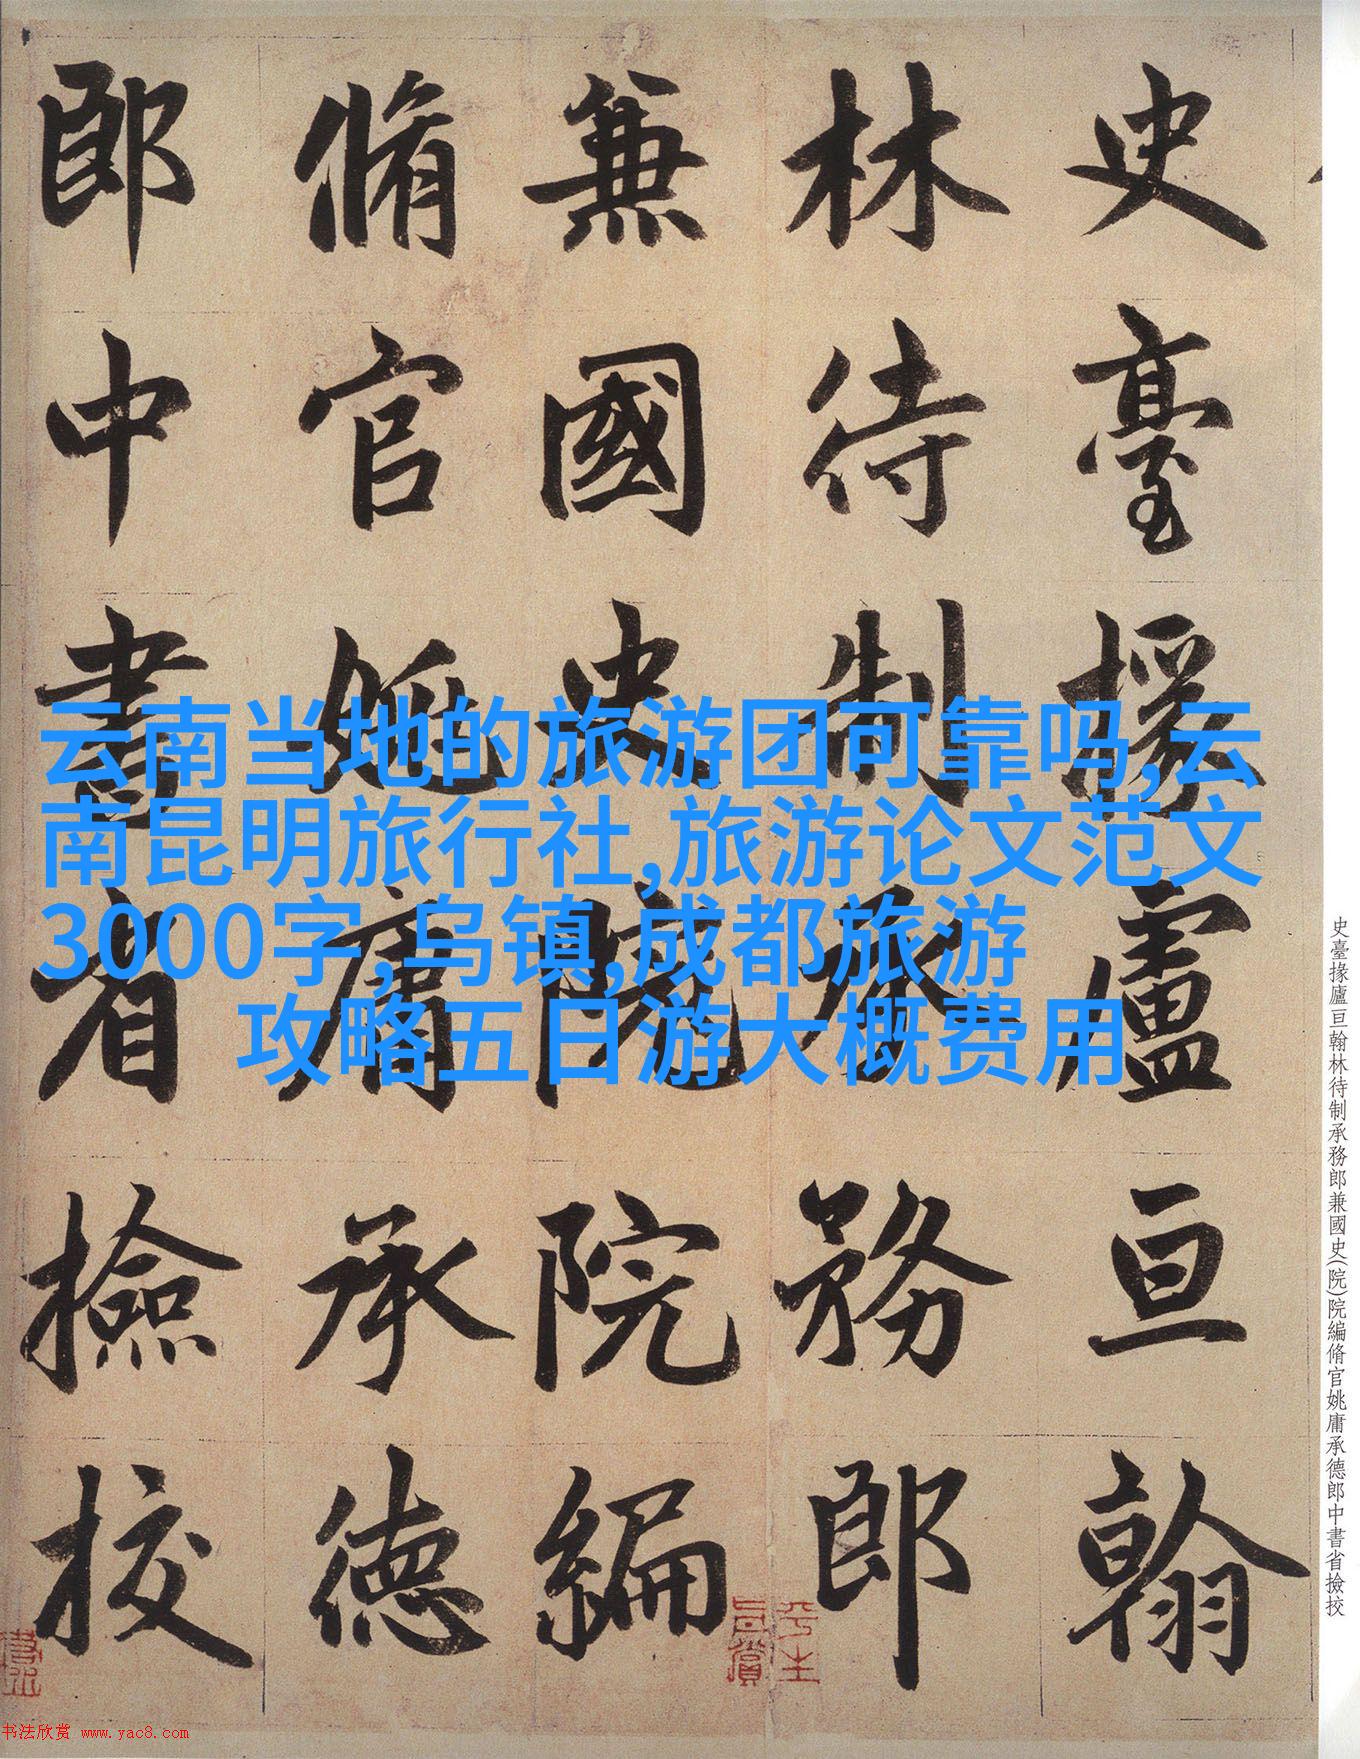 史臺掾盧亘翰
林待制承務郎
兼國史院院編
脩官姚庸承德
郎中書省撿挍
云南当地的旅游团可靠吗,云
南昆明旅行社,旅游论文范文
3000字,乌镇,成都旅游
攻略五日游大概费用
史臺掾廬亘翰林待制承務郎兼國史(院)院編脩官姚庸承德郎中書省撿挍
书法欣赏 www.yac8.com